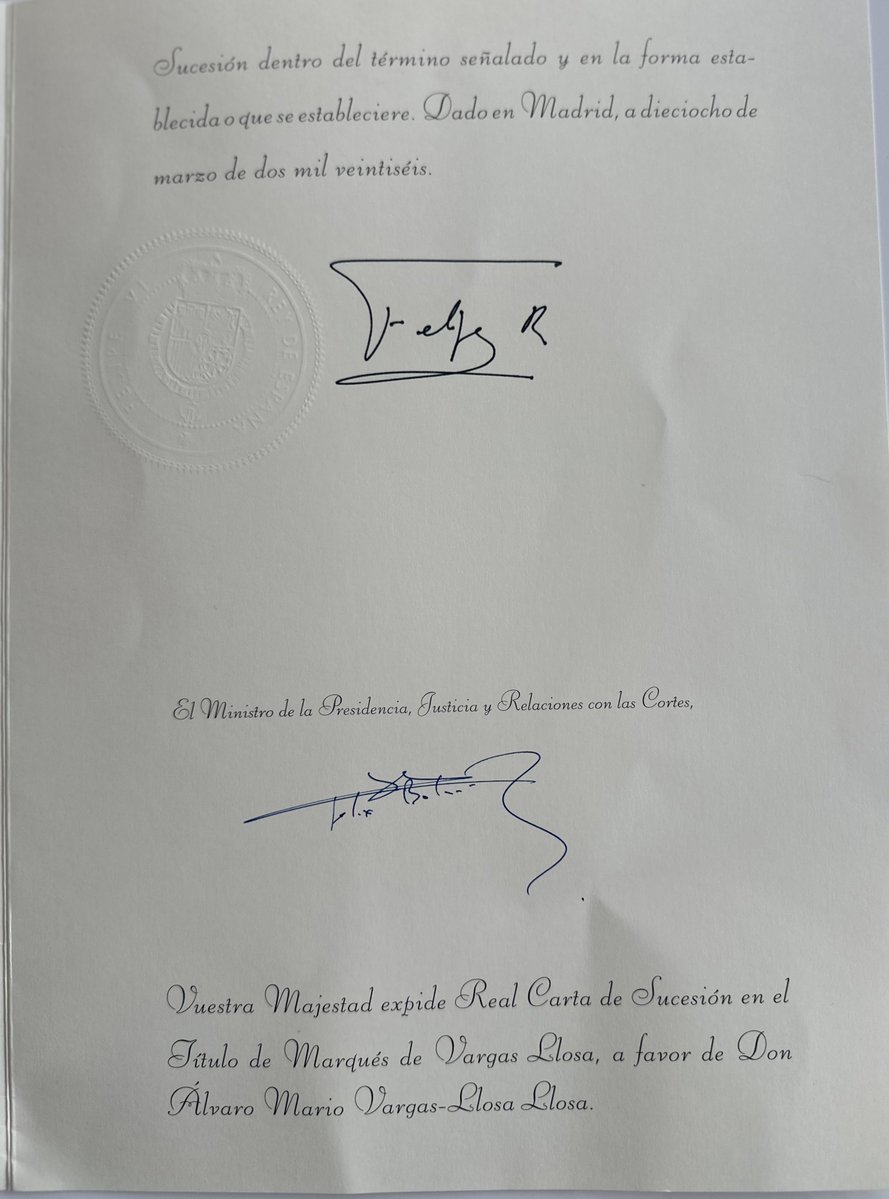 Sucesión dentro del término señalado y en la forma esta-
blecida o que se estableciere. Dado en Madrid, a dieciocho de
marzo de dos mil veintiséis.
FELIPE VI REY DE ESPAÑA
Felipe R
El Ministro de la Presidencia, Justicia y Relaciones con las Cortes,
Félix
Vuestra Majestad expide Real Carta de Sucesión en el
Título de Marqués de Vargas Llosa, a favor de Don
Álvaro Mario Vargas-Llosa Llosa.